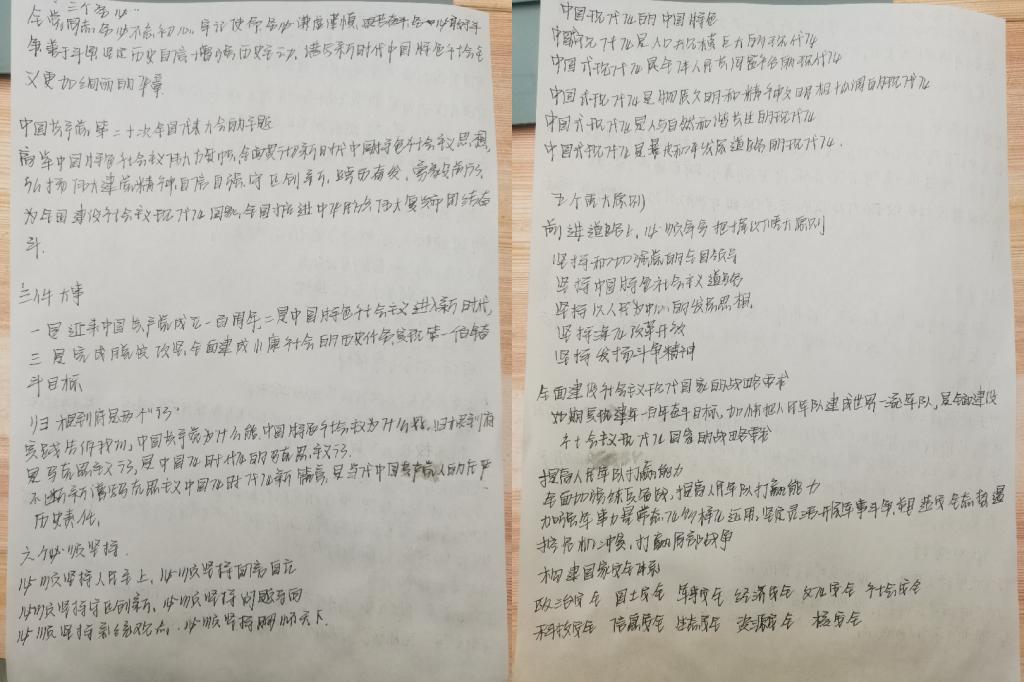 "三个务必"
全党同志务必不忘初心、牢记使命,务必谦虚谨慎、艰苦奋斗,务必敢于斗
争善于斗争,坚定历史自信,增强历史主动,谱写新时代中国特色社会主
义更加绚丽的华章
中国共产党第二十次全国代表大会的主题
高举中国特色社会主义伟大旗帜,全面贯彻新时代中国特色社会主义思想,
弘扬伟大建党精神,自信自强、守正创新,踔厉奋发、勇毅前行,
为全面建设社会主义现代化国家,全面推进中华民族伟大复兴而团结奋
斗.
三件大事
一是迎来中国共产党成立一百周年,二是中国特色社会主义进入新时代,
三是完成脱贫攻坚、全面建成小康社会的历史任务,实现第一个百年奋
斗目标
归根到底是两个"行"
实践告诉我们,中国共产党为什么能,中国特色社会主义为什么好,归根到底
是马克思主义行,是中国化时代化的马克思主义行.
不断谱写马克思主义中国化时代化新篇章,是当代中国共产党人的庄严
历史责任.
六个必须坚持.
必须坚持人民至上,必须坚持自信自立
必须坚持守正创新,必须坚持问题导向
必须坚持系统观念,必须坚持胸怀天下.
中国现代化的中国特色
中国式现代化是人口规模巨大的现代化
中国式现代化是全体人民共同富裕的现代化
中国式现代化是物质文明和精神文明相协调的现代化
中国式现代化是人与自然和谐共生的现代化
中国式现代化是走和平发展道路的现代化.
五个重大原则
前进道路上,必须牢牢把握以下重大原则
坚持和加强党的全面领导
坚持中国特色社会主义道路
坚持以人民为中心的发展思想.
坚持深化改革开放
坚持发扬斗争精神
全面建设社会主义现代国家的战略要求
如期实现建军一百年奋斗目标,加快把人民军队建成世界一流军队,是全面建设
社会主义现代化国家的战略要求
提高人民军队打赢能力
全面加强练兵备战,提高人民军队打赢能力
加强军事力量常态化多样化运用,坚定灵活开展军事斗争,塑造安全态势,遏
控危机冲突,打赢局部战争
构建国家安全体系
政治安全 国土安全 军事安全 经济安全 文化安全 社会安全
科技安全 信息安全 生态安全 资源安全 核安全